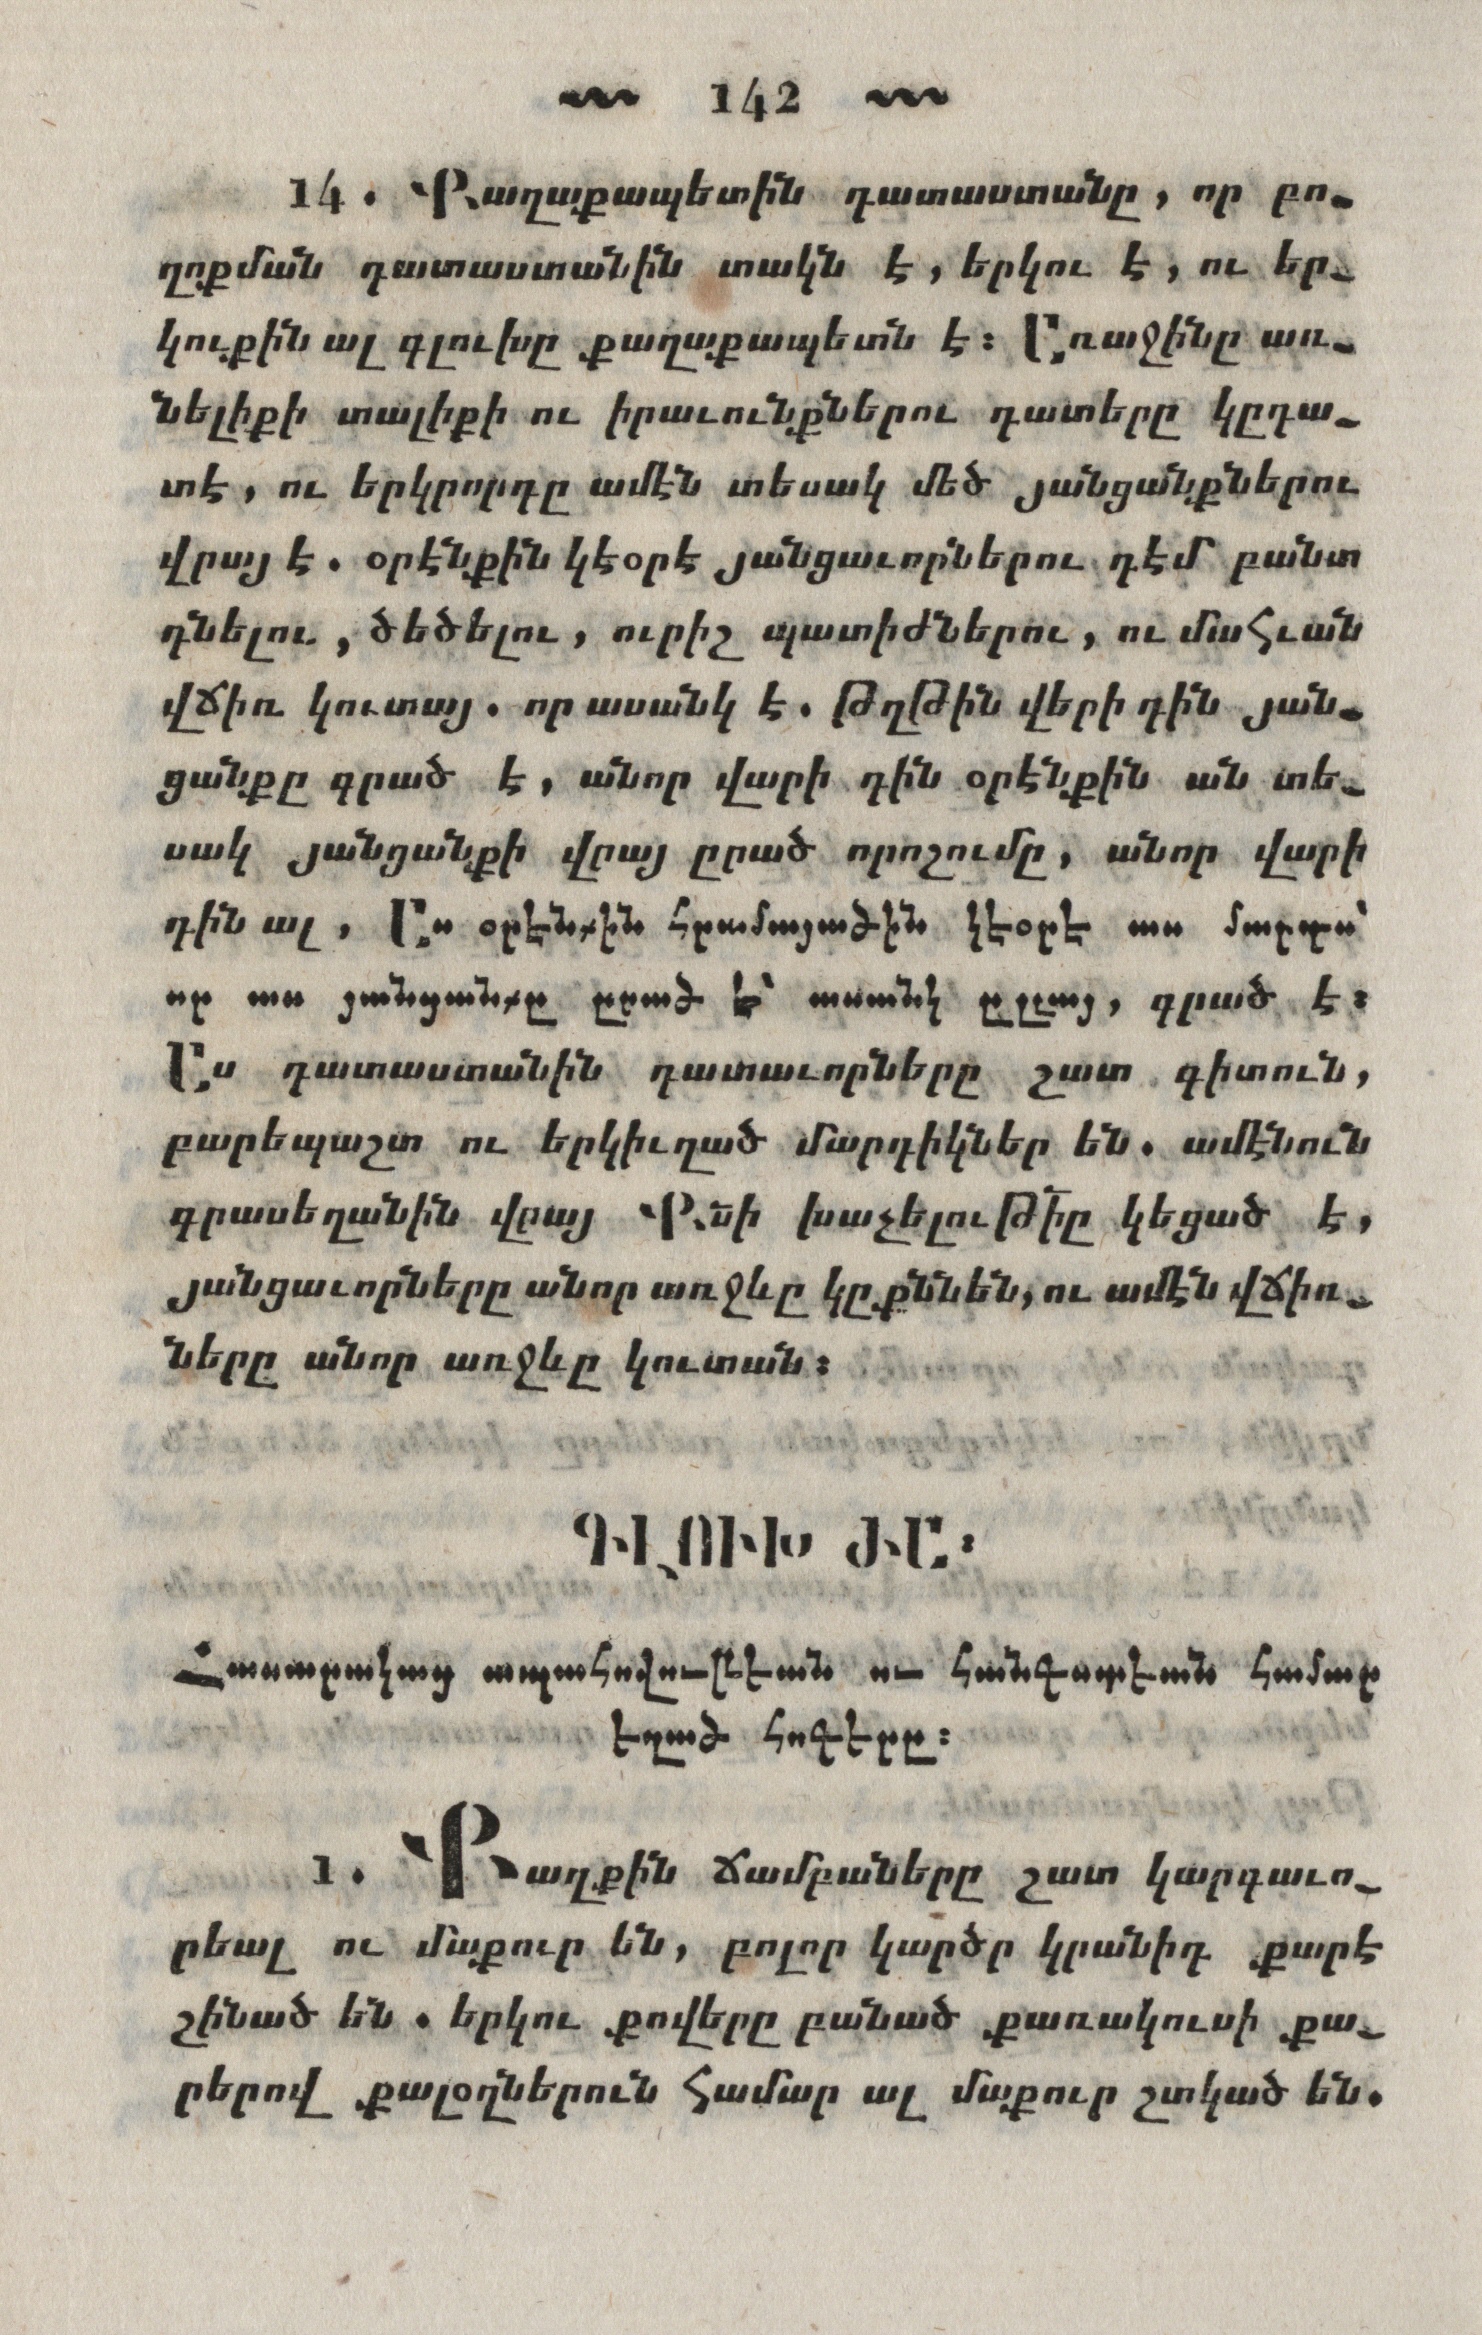 142
14. Քաղաքապետին դատաստանը, որ բո֊
ղոքման դատաստանին տակն է, երկու է, ու եր֊
կուքին ալ գլուխը քաղաքապետն է։ Առաջինը առ֊
նելիքի տալիքի ու իրաւունքներու դատերը կըդա֊
տէ, ու երկրորդը ամէն տեսակ մեծ յանցանքներու
վրայ է. օրէնքին կէօրէ յանցաւորներու դէմ բանտ
դնելու, ծեծելու, ուրիշ պատիժներու, ու մահւան
վճիռ կուտայ. որ ասանկ է. թղթին վերի դին յան֊
ցանքը գրած է, անոր վարի դին օրէնքին ան տե֊
սակ յանցանքի վըայ ըրած որոշումը, անոր վարի
դին ալ, Աս օրէնքին հրամայածին կէօրէ աս մարդս՝
որ աս յանցանքը ըրած է՝ ասանկ ըլլայ, գրած է։
Աս դատաստանին դատաւորները շատ գիտուն,
բարեպաշտ ու երկիւղած մարդիկներ են. ամէնուն
գրասեղանին վըայ Քսի խաչելութիը կեցած է,
յանցաւորները անոր առջևը կըքննեն, ու ամէն վճիռ֊
ները անոր առջևը կուտան։
ԳԼՈՒԽ ԺԸ։
Հասարակաց ապահովութեան ու հանգստեան համար
եղած հոգերը։
1. Քաղքին ճամբաները շատ կարգաւո֊
րեալ ու մաքուր են, բոլոր կարծր կրանիդ քարէ
շինած են. երկու քովերը բանած քառակուսի քա֊
րերով քալօղներուն համար ալ մաքուր շտկած են.